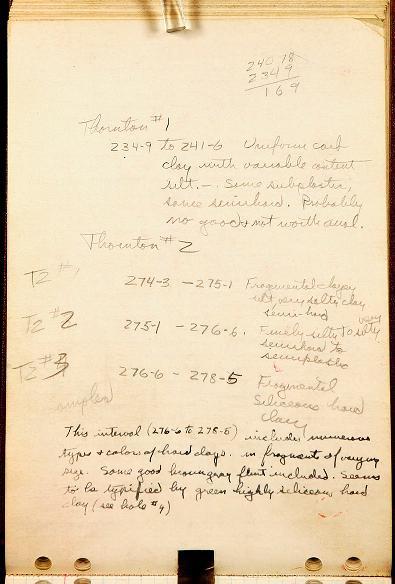 240 18
234 9
1 6 9
Thornton #1
234-9 to 241-6 Uniform
clay with variable content
silt. - Some subplastic,
some semihard. Probably
no good & not worth anal.
Thornton #2
T2 #1 274-3 - 275-1 Fragmental clayey
silt, very salty clay
semi-hard
T2 #2 275-1 - 276-6. Finely silty to very silty.
semihard to
semiplastic
T2 #3 276-6 - 278-5 Fragmental
siliceous hard
clay
This interval (276-6 to 278-5) includes numerous
types & colors of hard clays. in fragments of varying
size. Some good brown gray flint included. Seems
to be typified by green highly siliceous hard
clay (see hole #4)